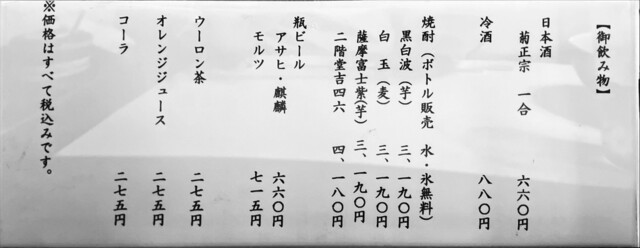 【御飲み物】
日本酒
菊正宗 一合 六六〇円
冷酒 八八〇円
焼酎（ボトル販売 水・氷無料）
黒白波（芋） 三、一九〇円
白 玉（麦） 三、一九〇円
薩摩富士紫（芋） 三、一九〇円
二階堂吉四六 四、一八〇円
瓶ビール
アサヒ・麒麟 六六〇円
モルツ 七一五円
ウーロン茶 二七五円
オレンジジュース 二七五円
コーラ 二七五円
※価格はすべて税込みです。